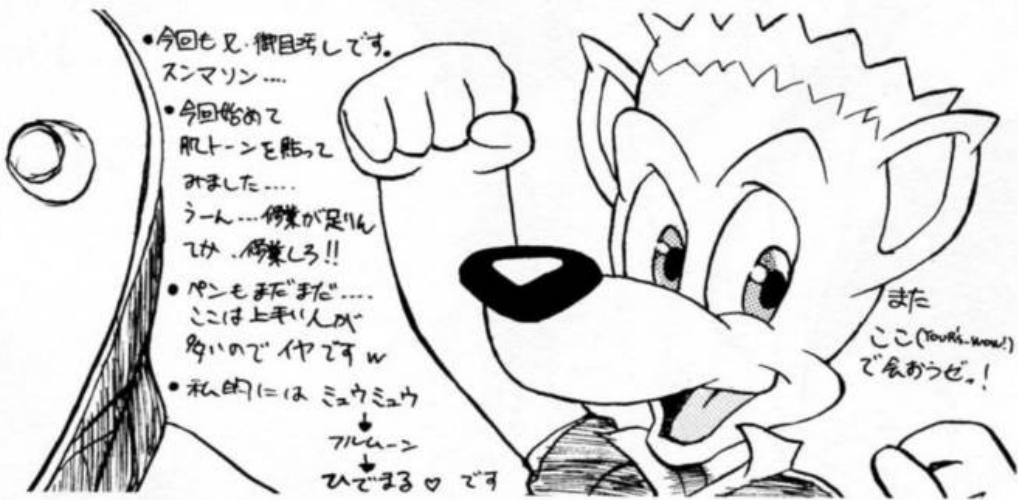 •今回も又、御目汚しです。
スンマソン....
•今回始めて
肌トーンを貼って
みました....
うーん...修業が足りん
てか、修業しろ!!
•ペンもまだまだ....
ここは上手い人が
多いのでイヤですw
•私的には ミュウミュウ
↓
フルムーン
↓
ひでまる♡ です
また
ここ(YOUR's-wow!)
で会おうぜっ!